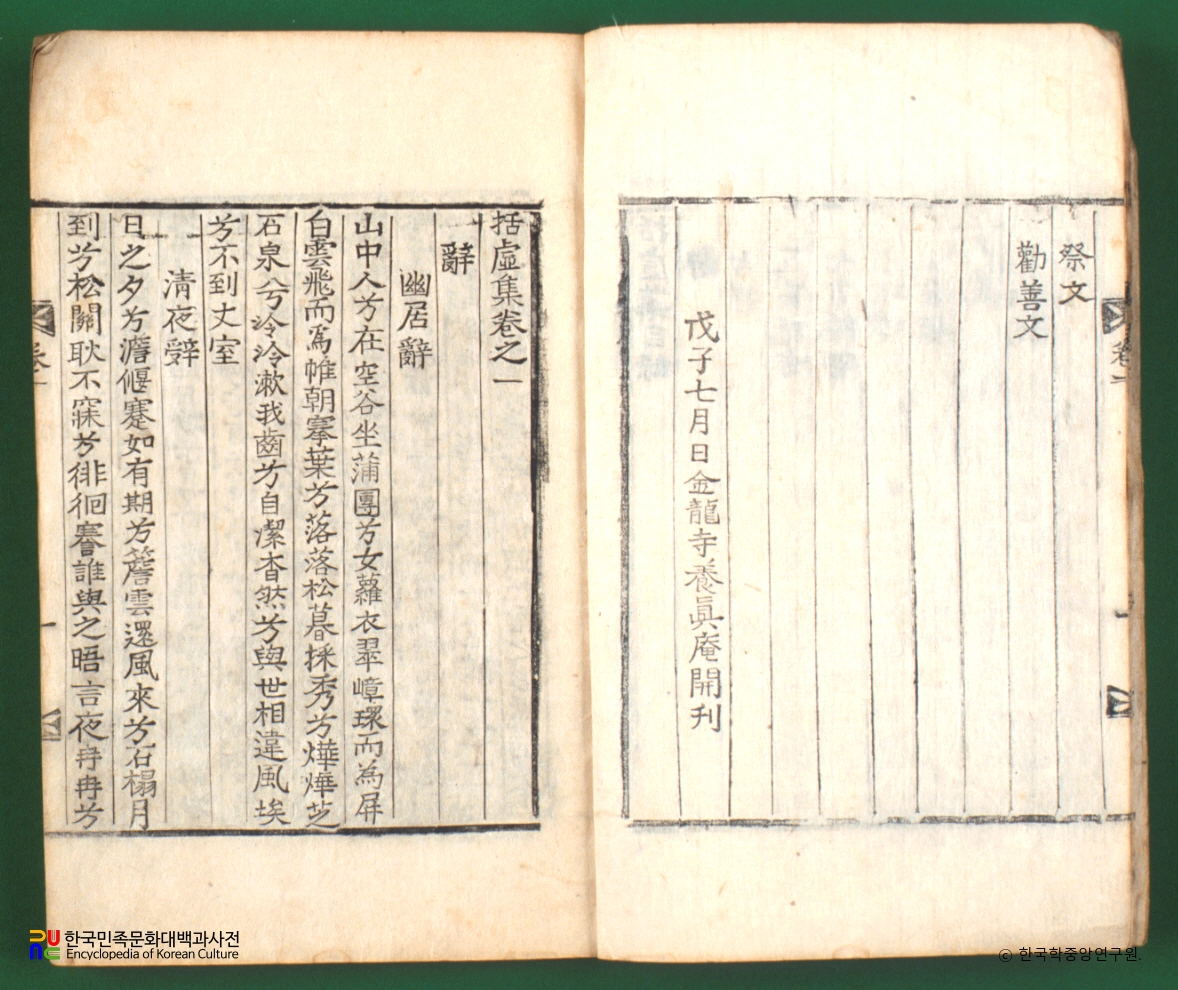 祭文
勸善文
戊子七月日金龍寺養眞庵開刊
卷一
括虛集卷之一
辭
幽居辭
山中人兮在空谷坐蒲團兮女蘿衣翠嶂環而為屏
白雲飛而爲帷朝搴葉兮落落松暮採秀兮燁燁芝
石泉兮泠泠漱我齒兮自潔杳然兮與世相違風埃
兮不到丈室
清夜辭
日之夕兮澹偃蹇如有期兮簷雲還風來兮石榻月
到兮松關耿不寐兮徘徊謇誰與之晤言夜冉冉兮
卷一
一
한국민족문화대백과사전
Encyclopedia of Korean Culture
© 한국학중앙연구원.